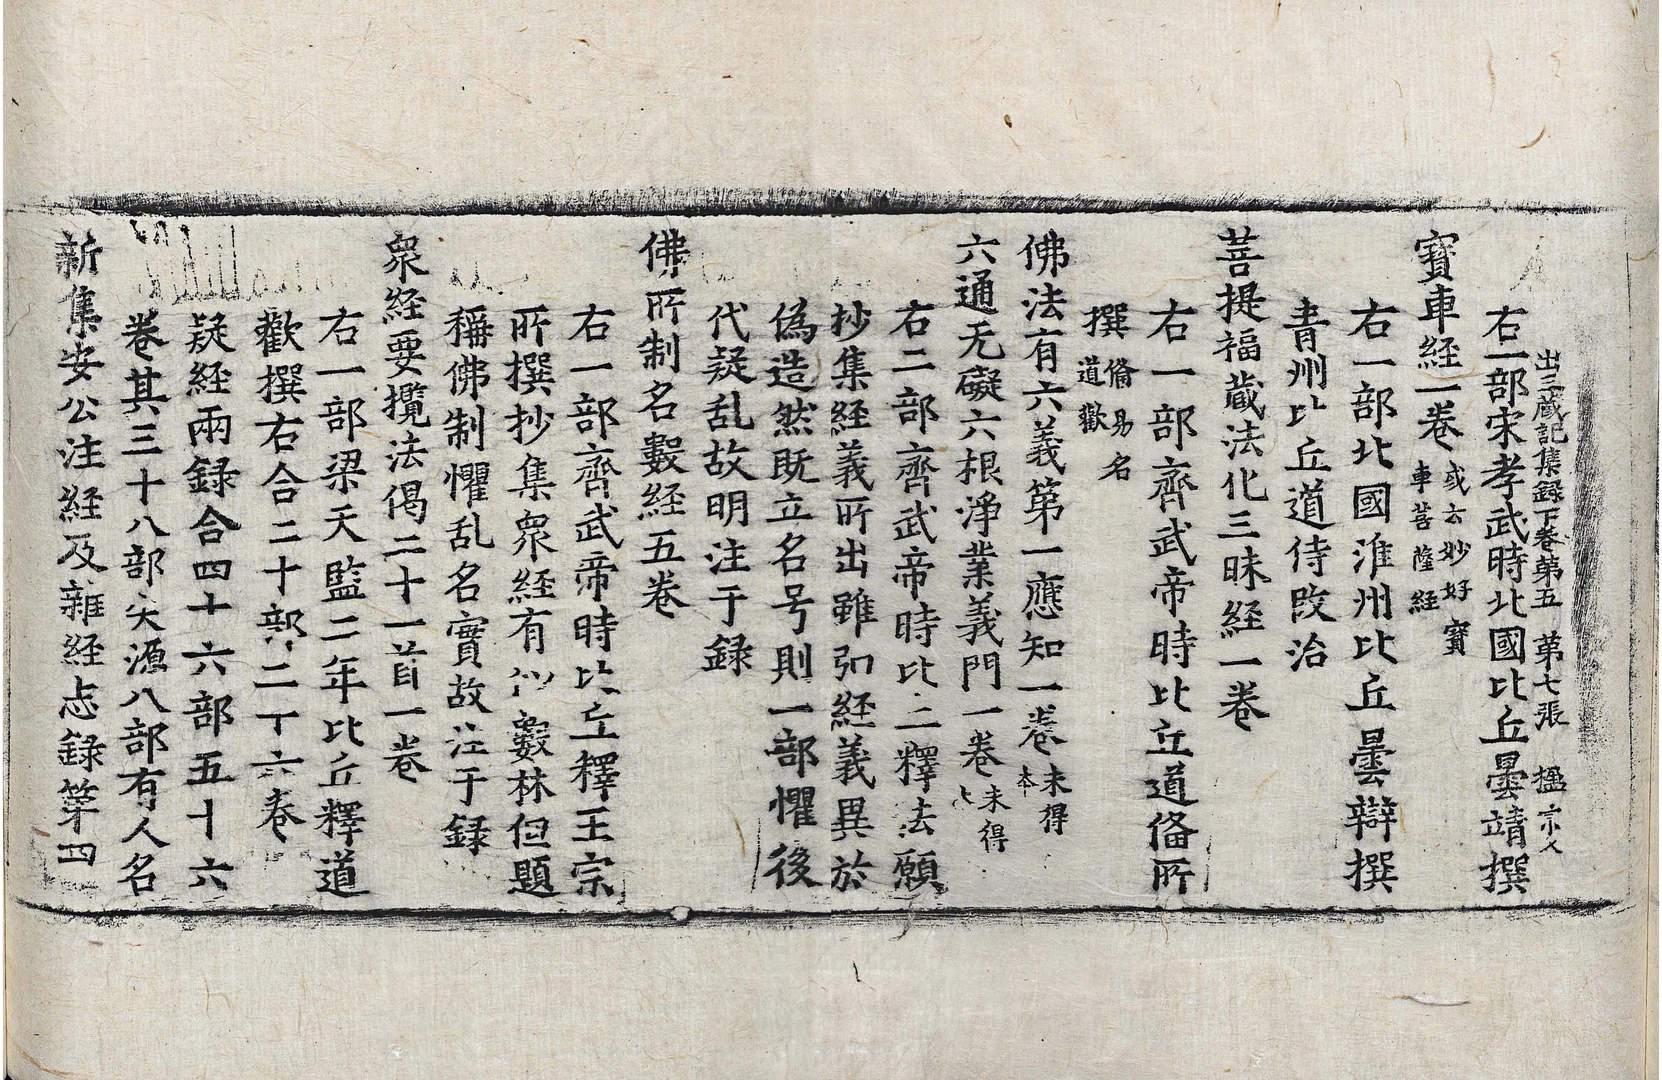 出三藏記集錄下卷第五 第七張 揾 宗人
右一部宋孝武時北國比丘曇靖撰
寶車経一卷 或云妙好寶車菩薩経
右一部北國淮州比丘曇辯撰
青州比丘道侍改治
菩提福藏法化三昧経一卷
右一部齊武帝時比丘道俻所
撰 俻易名道歡
佛法有六義第一應知一卷 未得本
六通无礙六根淨業義門一卷 未得
右二部齊武帝時比丘釋法願
抄集経義所出雖弘経義異於
偽造然旣立名号則一部懼後
代疑乱故明注于録
佛所制名數経五卷
右一部齊武帝時比丘釋王宗
所撰抄集衆経有似數林但題
稱佛制懼乱名實故注于録
衆経要攬法偈二十一首一卷
右一部梁天監二年比丘釋道
歡撰右合二十部二十六卷
疑経兩録合四十六部五十六
卷其三十八部失源八部有人名
新集安公注経及雜経志録第四